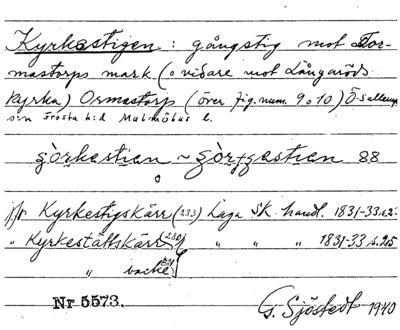 Kyrkestigen: gångstig mot Tor-
mastorps mark. (o vidare mot Långaröds
kyrka) Ormastorp (över fig. num. 9 o 10) Ö. Sallerup
s:n Frosta h:d Malmöhus l.
88
jfr Kyrkestigskärr (233) Laga Sk. handl. 1831-33 s.
" Kyrkestättskärr (230) " " " 1831-33 s. 25
" backe
Nr 5573.
G. Sjöstedt 1940